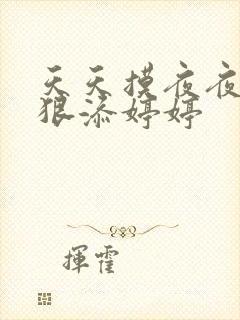 天天摸夜夜
狠添婷婷
揮霍